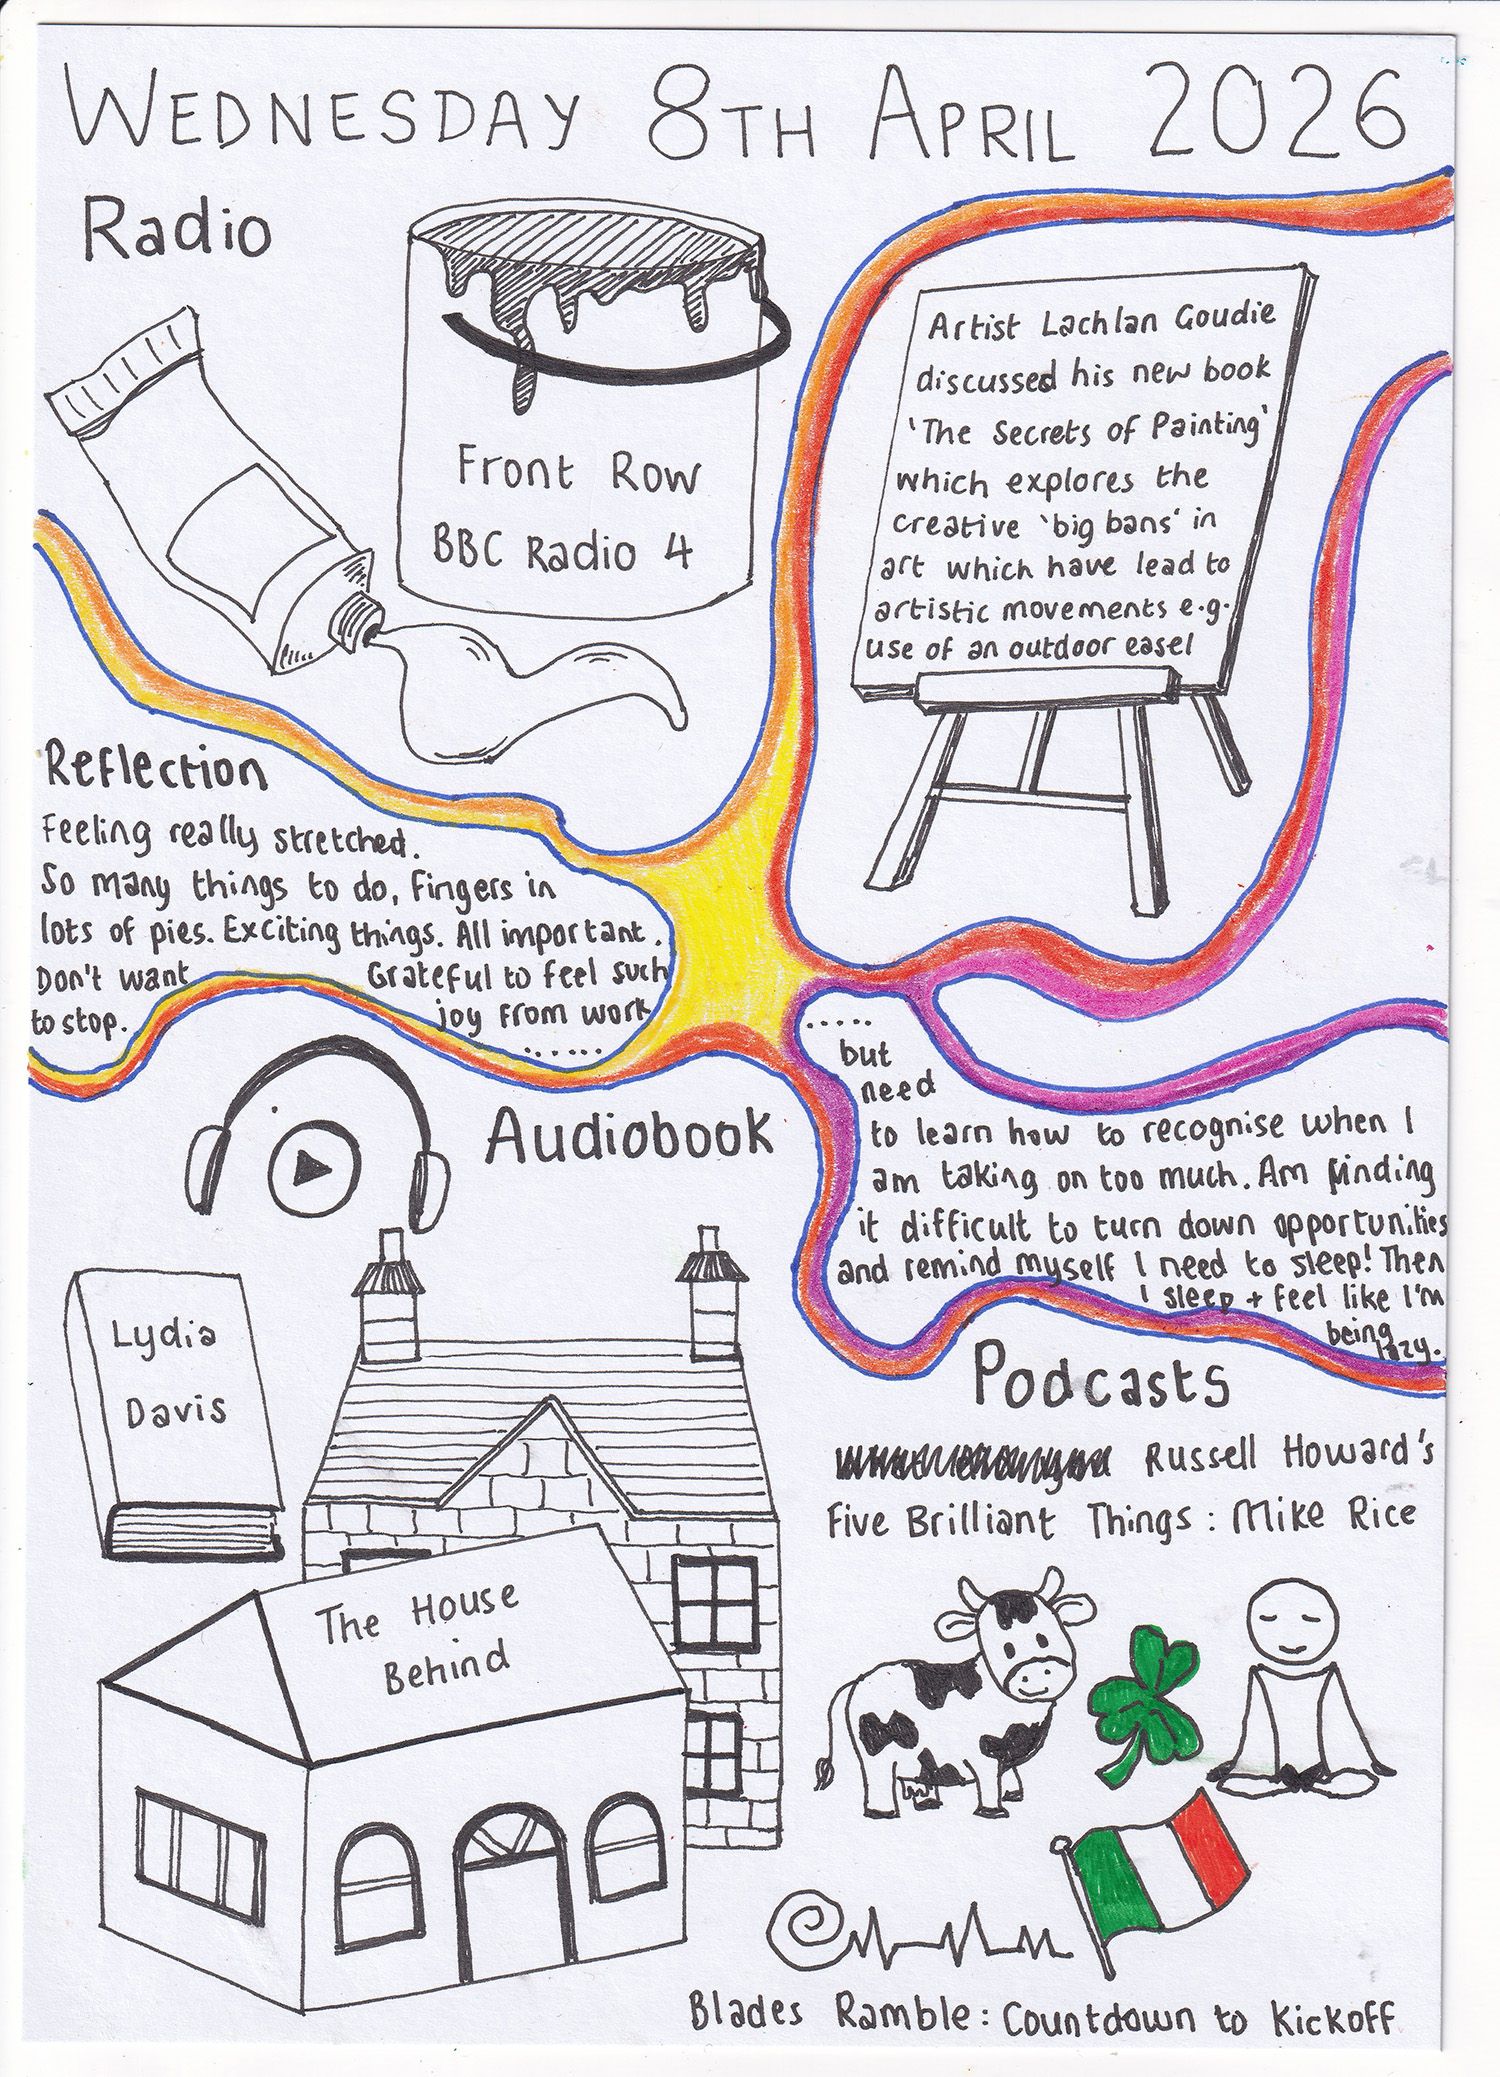 WEDNESDAY 8TH APRIL 2026
Radio
Front Row
BBC Radio 4
Artist Lachlan Goudie
discussed his new book
'The Secrets of Painting'
which explores the
creative 'big bans' in
art which have lead to
artistic movements e.g.
use of an outdoor easel
Reflection
Feeling really stretched.
So many things to do, fingers in
lots of pies. Exciting things. All important.
Don't want Grateful to feel such
to stop. joy from work
.....
.....
but
need
to learn how to recognise when I
am taking on too much. Am finding
it difficult to turn down opportunities
and remind myself I need to sleep! Then
I sleep + feel like I'm
being
lazy.
Audiobook
Lydia
Davis
The House
Behind
Podcasts
Russell Howard's
Five Brilliant Things: Mike Rice
Blades Ramble: Countdown to Kickoff